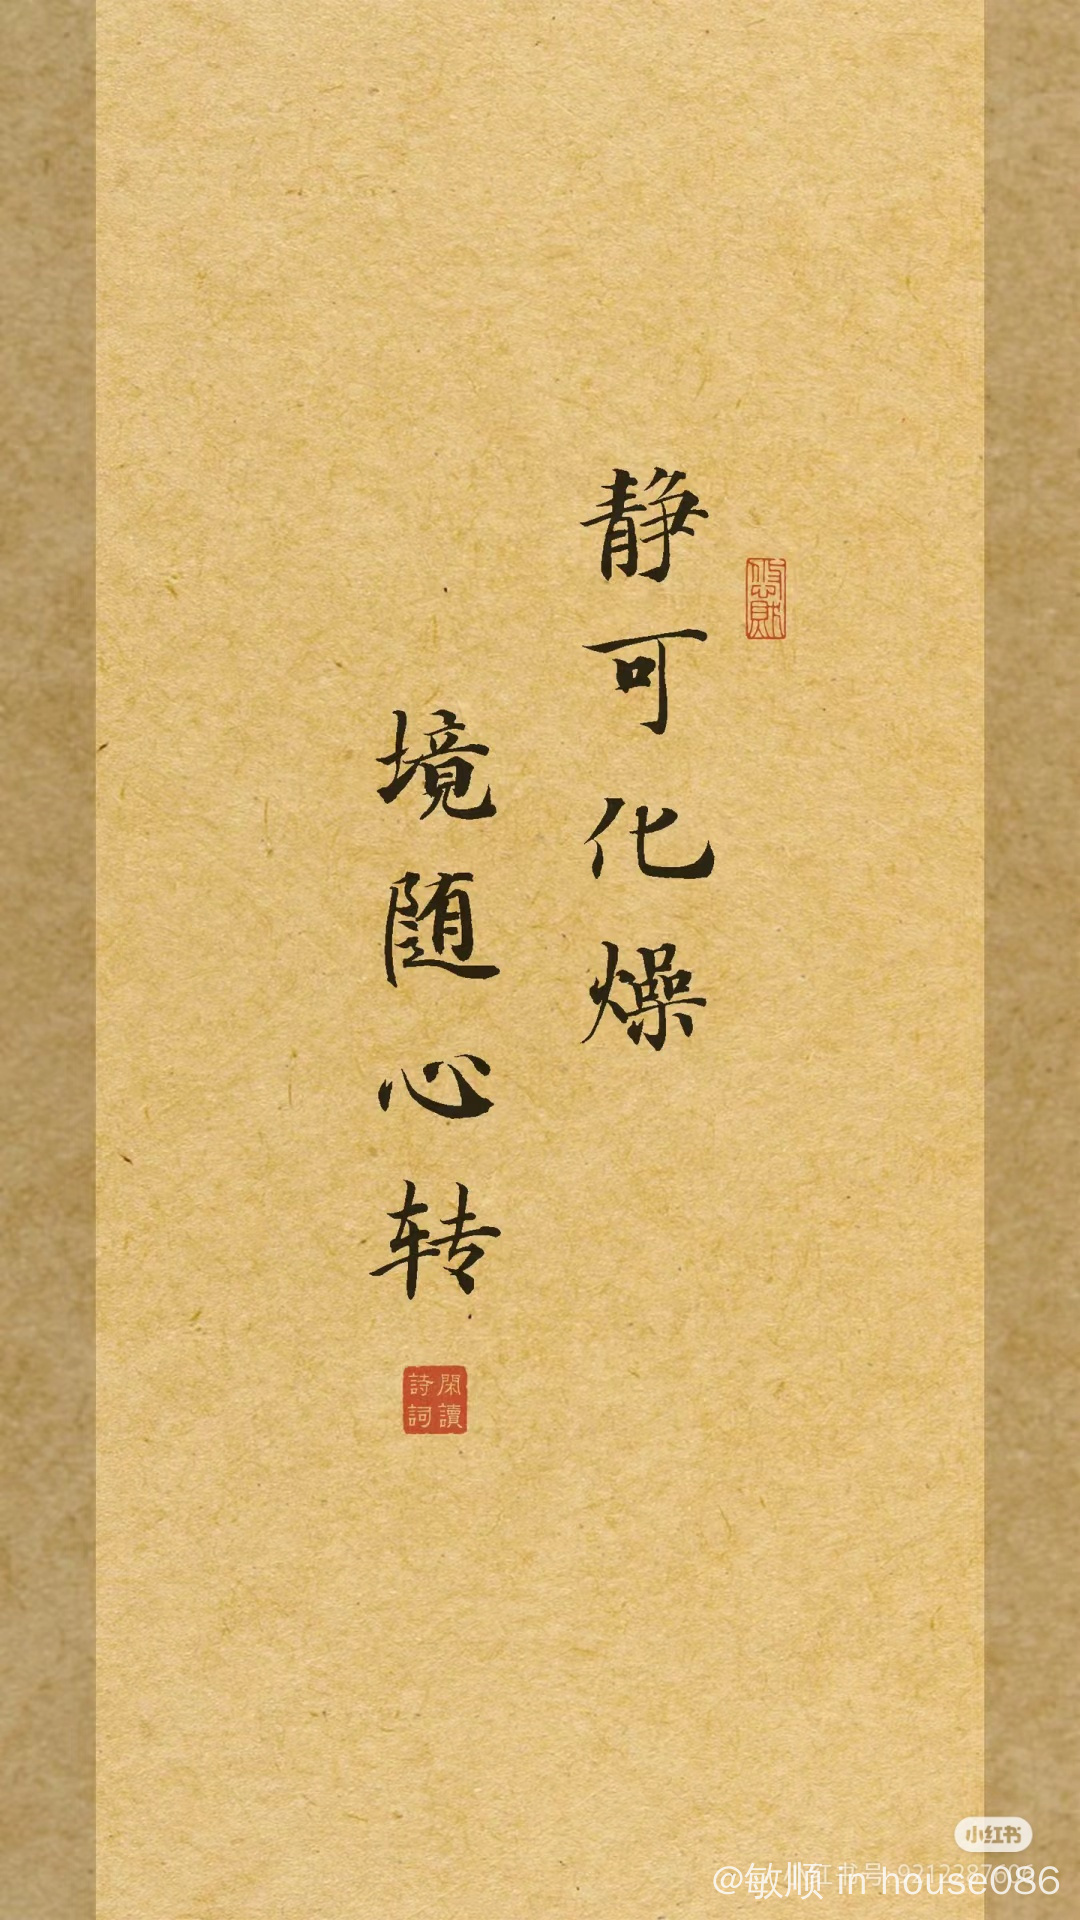 静可化燥
境随心转
閑讀
詩詞
小红书
@敏顺 in house086